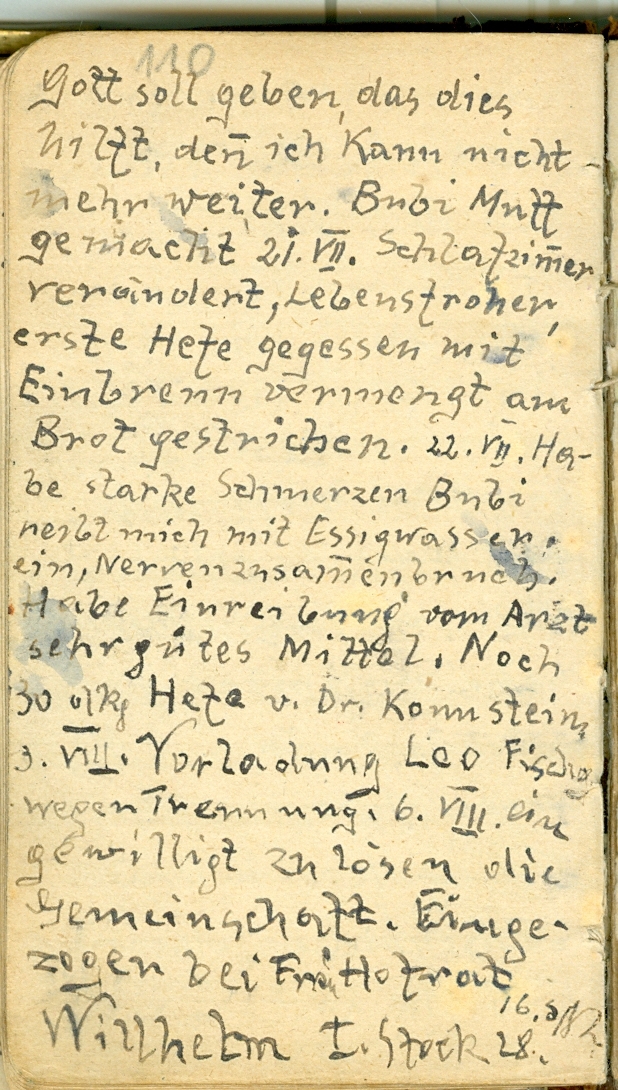 110
Gott soll geben, das dies
hilft, den̄ ich Kann nicht
mehr weiter. Bubi Mutt
gemacht 21. VII. Schlafzim̄er
verändert, Lebensfroher,
erste Hefe gegessen mit
Einbrenn vermengt am
Brot gestrichen. 22. VII. Ha-
be starke Schmerzen Bubi
reibt mich mit Essigwasser.
ein, Nervenzusam̄enbruch.
Habe Einreibung vom Arzt
sehr gutes Mittel. Noch
30 dkg Hefe v. Dr. Konnstein,
3. VIII. Vorladung Leo
wegen Trennung. 6. VIII. ein
gewilligt zu lösen die
Gemeinschaft. Einge-
zogen bei Frau Hofrat
Willhelm I. Stock 28.
16.